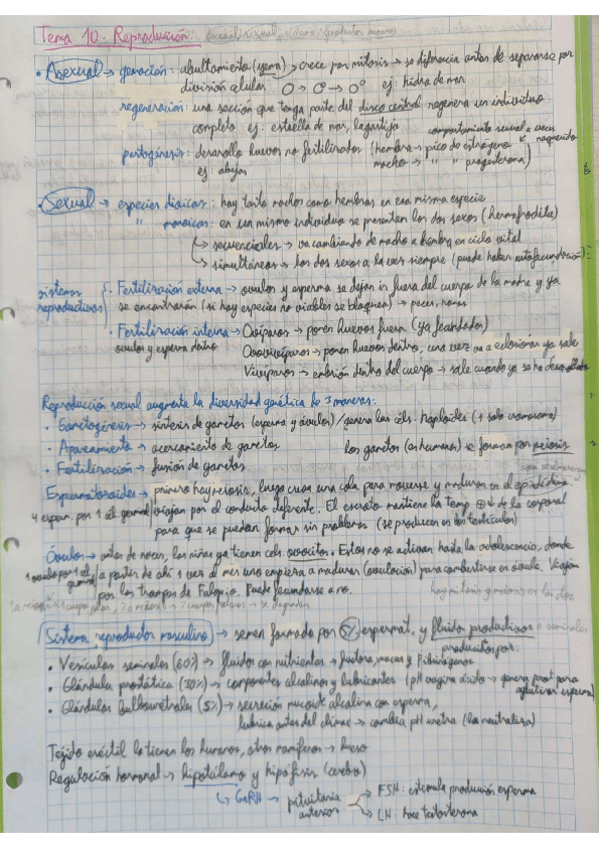 Tema 10. Reproducción: asexual, sexual, sistema reproductor humano
• Asexual → gemación: abultamiento (yema) → crece por mitosis → se diferencia antes de separarse por
división celular ej: hidra de mar
regeneración: una sección que tenga parte del disco central regenera un individuo
completo ej: estrella de mar, lagartija
partogénesis: desarollo huevos no fertilizados (hembra → pico de estrógeno
macho → " " progesterona)
comportamiento sexual a veces requerido
ej: abejas
• Sexual → especies dioicas: hay tanto machos como hembras en esa misma especie
" monoicas: en un mismo individuo se presentan los dos sexos (hermafrodita)
↳ secuenciales → va cambiando de macho a hembra en ciclo vital
↳ simultáneas → los dos sexos a la vez siempre (puede haber autofecundación)
sistemas reproductivos
• Fertilización externa → óvulos y esperma se dejan ir fuera del cuerpo de la madre y ya
se encontrarán (si hay especies no viables se bloquean) → peces, ranas
• Fertilización interna → Ovíparos → ponen huevos fuera (ya fecundados)
óvulos y esperma dentro
Ovovivíparos → ponen huevos dentro, una vez va a eclosionar ya sale
Vivíparos → embrión dentro del cuerpo → sale cuando ya se ha desarrollado
Reproducción sexual augmenta la diversidad genética de 3 maneras:
• Gametogénesis → síntesis de gametos (esperma y óvulos) / genera las céls. haploides (1 solo cromosoma)
• Apareamiento → acercamiento de gametos los gametos (en humanos) se forman por meiosis
• Fertilización → fusión de gametos
Espermatozoides → primero hay meiosis, luego crean una cola para moverse y maduran en el epidídimo
4 esperm. por 1 cél. germinal
viajan por el conducto deferente. El escroto mantiene la temp. ↓ de la corporal
para que se puedan formar sin problemas (se producen en los testículos)
Óvulos → antes de nacer, las niñas ya tienen céls. ovocitos. Estos no se activan hasta la adolescencia, donde
1 óvulo por 1 cél. germinal
a partir de ahí 1 vez al mes uno empieza a madurar (ovulación) para convertirse en óvulo. Viajan
por las trompas de Falopio. Puede fecundarse o no.
hay mitosis y meiosis en los dos
Sistema reproductor masculino → semen formado por 5% espermat. y fluidos productivos
seminales
producidos por:
• Vesículas seminales (60%) → fluidos con nutrientes → fructosa, mucosa y fibrinógenos
• Glándula prostática (30%) → componentes alcalinos y lubricantes (pH vagina ácido → genera prot para
aglutinar esperma)
• Glándulas bulbouretrales (5%) → secreción mucoide alcalina con esperma,
lubrica antes del clímax → cambia pH uretra (la neutraliza)
Tejido eréctil lo tienen los humanos, otros mamíferos → hueso
Regulación hormonal → hipotálamo y hipófisis (cerebro)
↳ GnRH → pituitaria anterior
→ FSH: estimula producción esperma
→ LH: hace testosterona